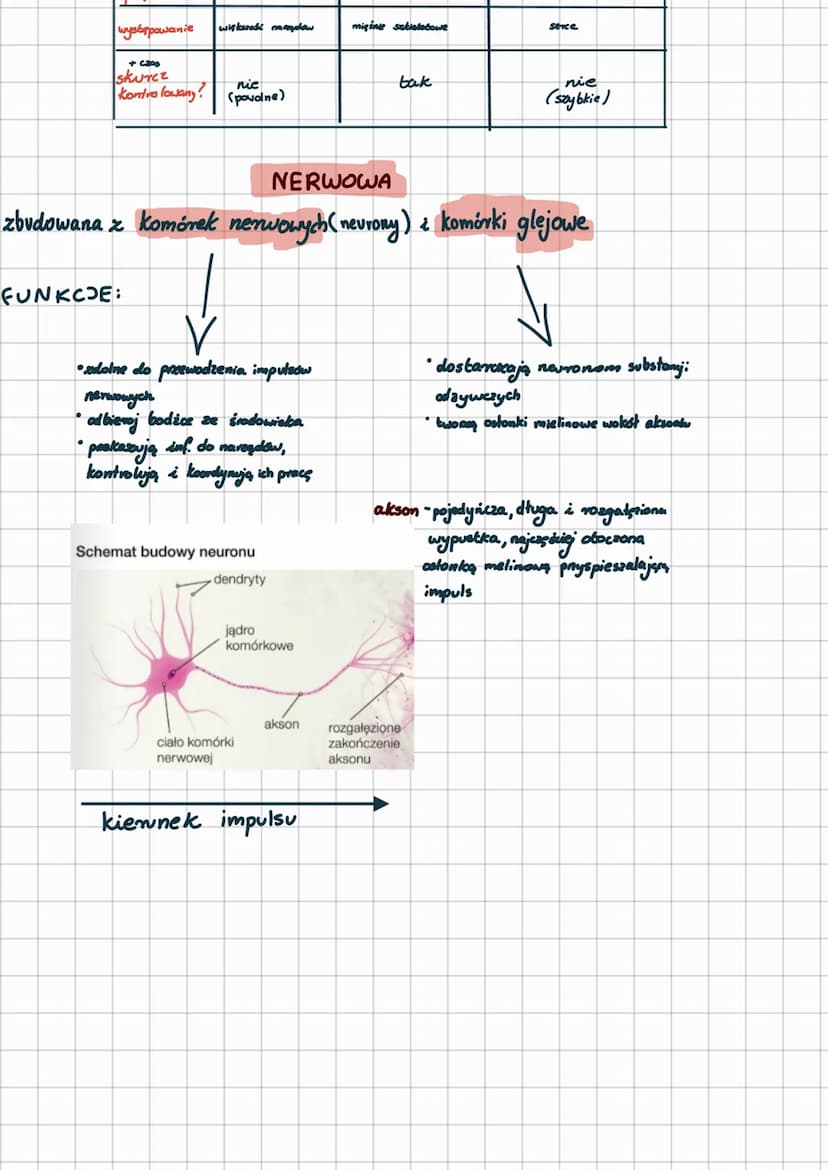 występowanie większość narządów mięśnie szkieletowe serce
+ czas
skurcz kontrolowany? nie (powolne) tak nie (szybkie)
NERWOWA
zbudowana z komórek nerwowych (neurony) i komórki glejowe
FUNKCJE:
• zdolne do przewodzenia impulsów
nerwowych
• odbieraj bodźce ze środowiska
• przekazują inf. do narządów,
kontrolują i koordynują ich pracę
• dostarczają neuronom substancji
odżywczych
• tworzą osłonki mielinowe wokół aksonów
akson - pojedyńcza, długa i rozgałęziona
wypustka, najczęściej otoczona
osłonką melinową przyspieszającą
impuls
Schemat budowy neuronu
dendryty
jądro
komórkowe
akson
ciało komórki
nerwowej
rozgałęzione
zakończenie
aksonu
kierunek impulsu